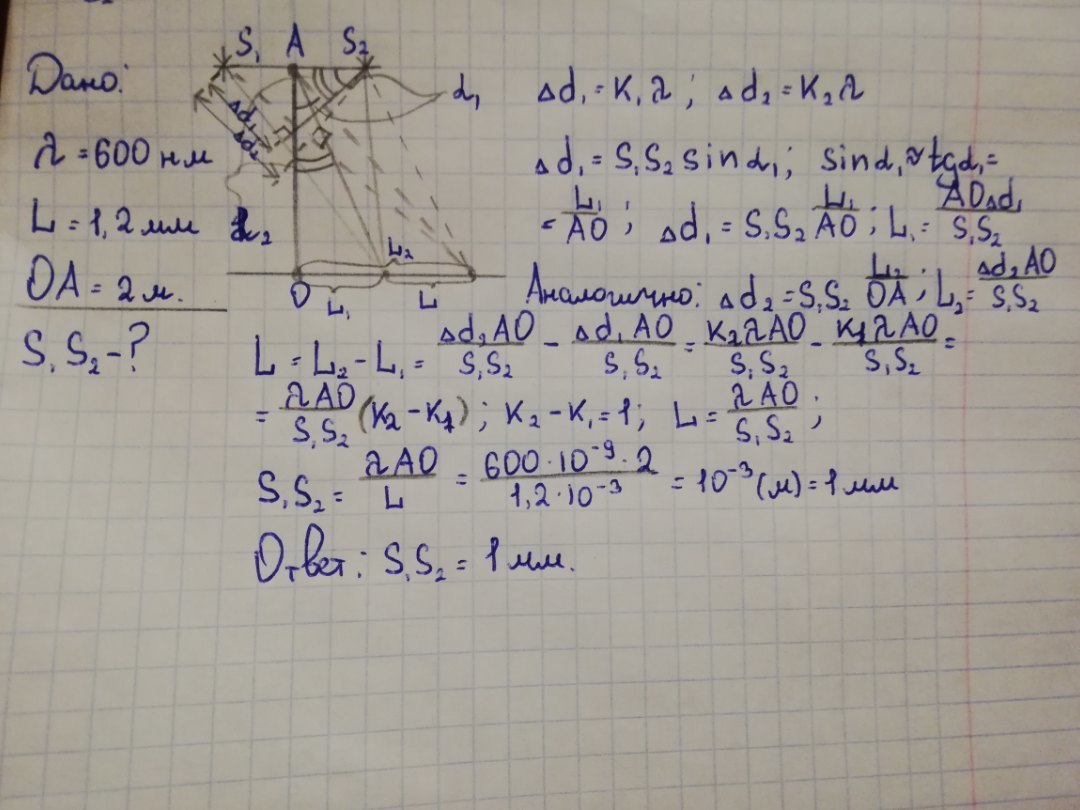 Дано:
λ = 600 нм
L = 1,2 мм
OA = 2 м.
S₁S₂ - ?
S₁ A S₂
α₁
Δd₁
Δd₂
α₂
L₂
O L₁ L
Δd₁ = K₁λ ; Δd₂ = K₂λ
Δd₁ = S₁S₂ sinα₁ ; sinα₁ ≈ tgα₁ =
= L₁/AO ; Δd₁ = S₁S₂ L₁/AO ; L₁ = AOΔd₁/S₁S₂
Аналогично: Δd₂ = S₁S₂ L₂/OA ; L₂ = Δd₂AO/S₁S₂
L = L₂ - L₁ = Δd₂AO/S₁S₂ - Δd₁AO/S₁S₂ = K₂λAO/S₁S₂ - K₁λAO/S₁S₂ =
= λAO/S₁S₂ (K₂ - K₁) ; K₂ - K₁ = 1 ; L = λAO/S₁S₂ ;
S₁S₂ = λAO/L = 600·10⁻⁹·2/1,2·10⁻³ = 10⁻³ (м) = 1 мм
Ответ: S₁S₂ = 1 мм.